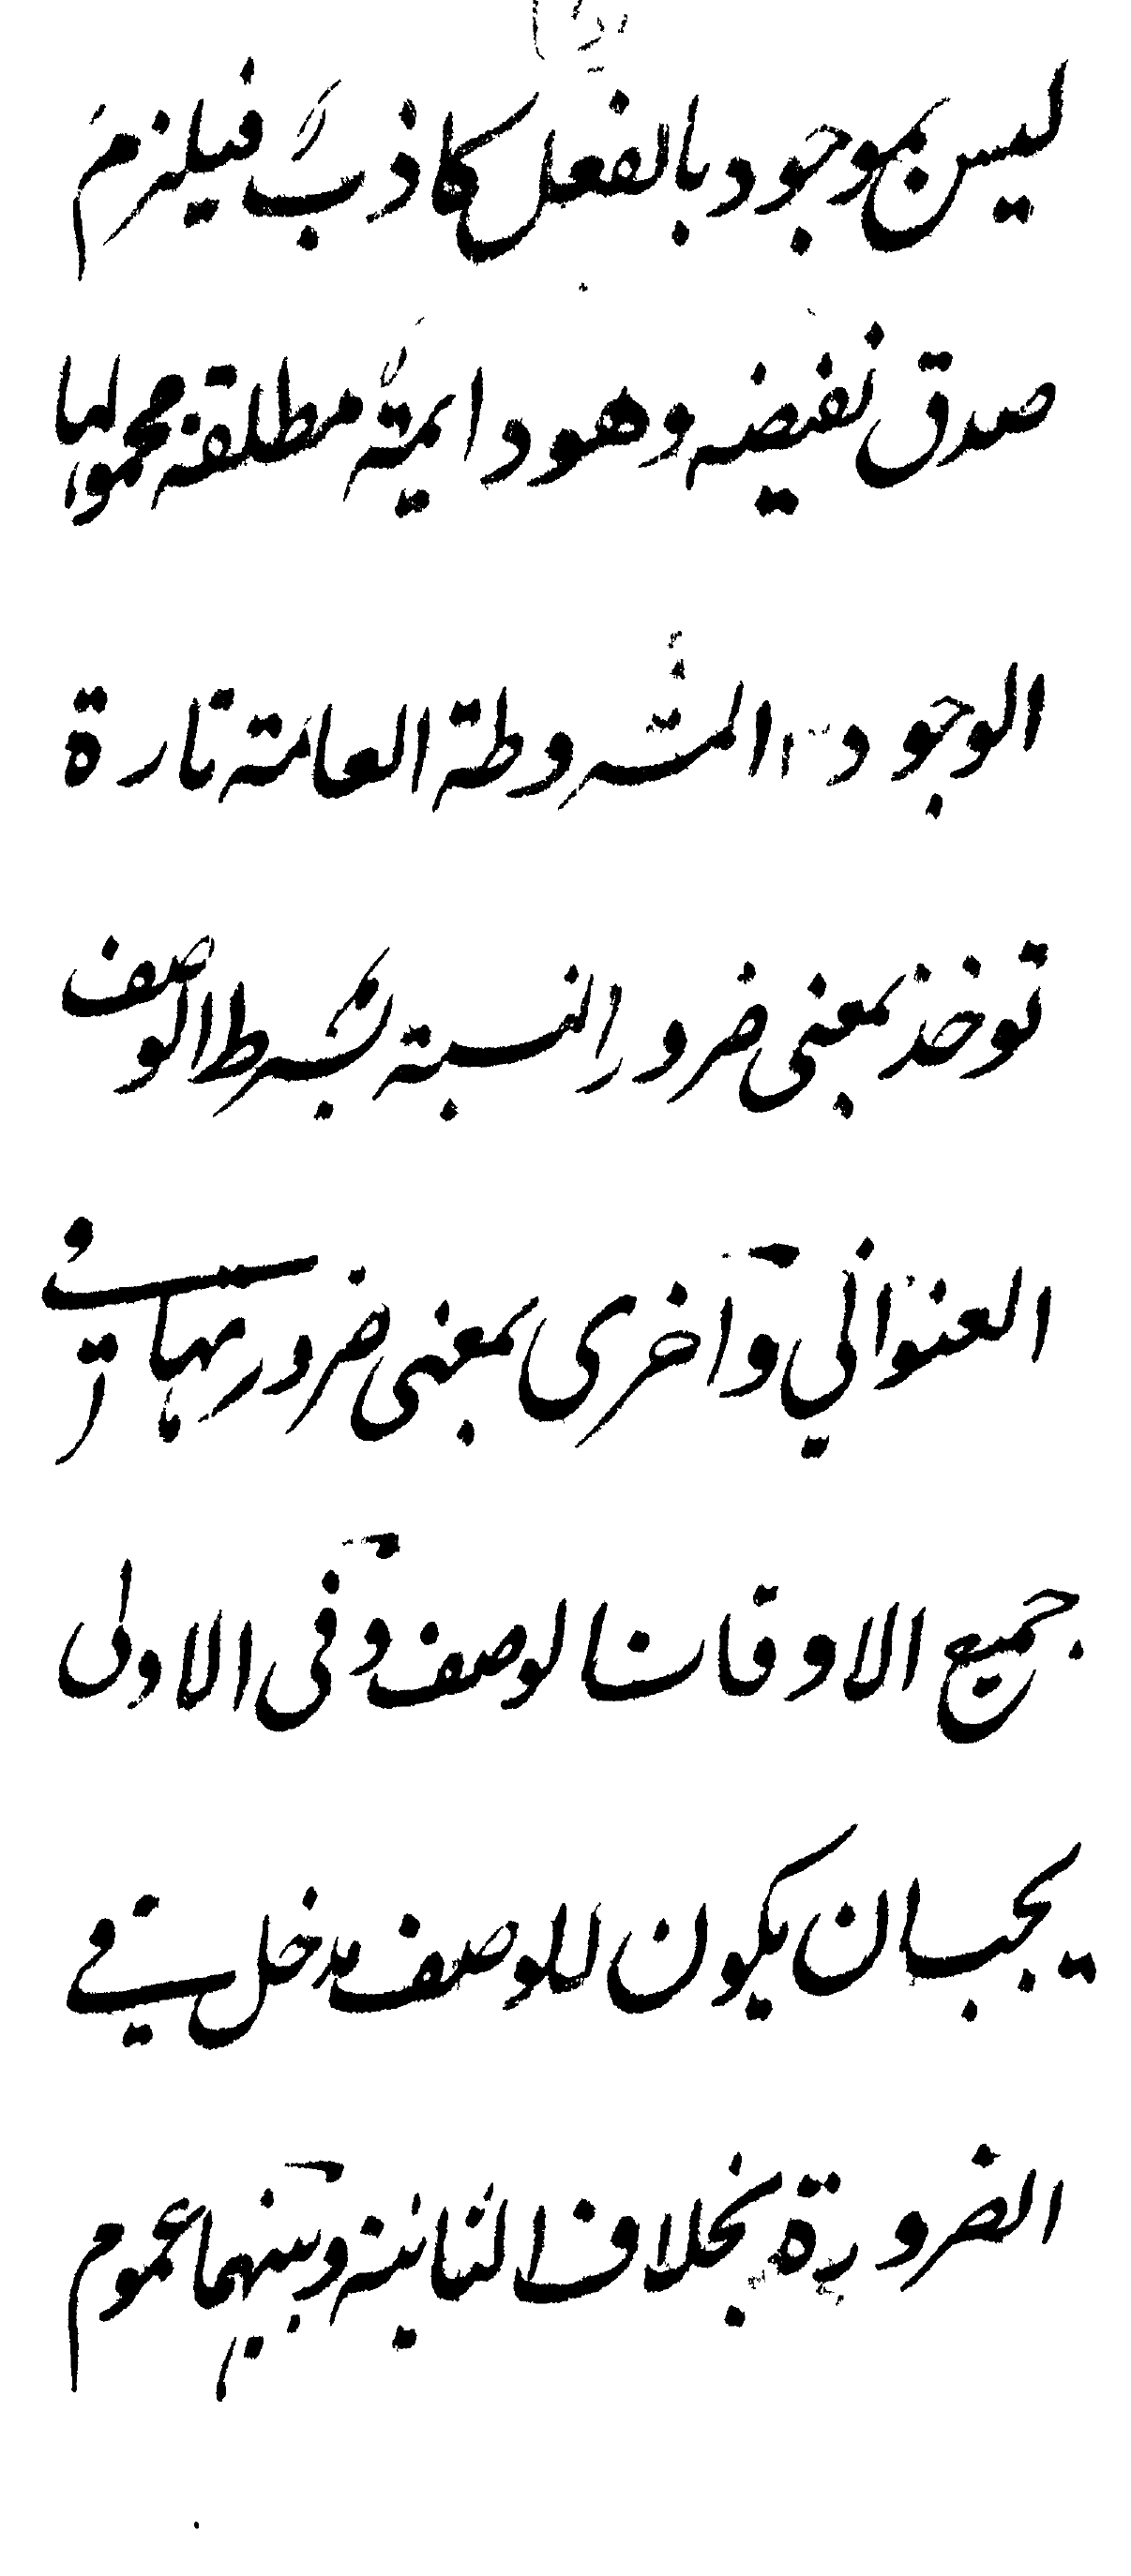 ليس بموجود بالفعل كاذب فيلزم
صدق نقيضه وهو دايمة مطلقة محمولها
الوجود المشروطة العامة تارة
توخذ بمعنى ضرور النسبة بشرط الوصف
العنواني وآخرى بمعنى ضرورتها في
جميع الاوقات الوصف وفى الاولى
يجب ان يكون للوصف مدخل في
الضرورة بخلاف الثانية وبينهما عموم